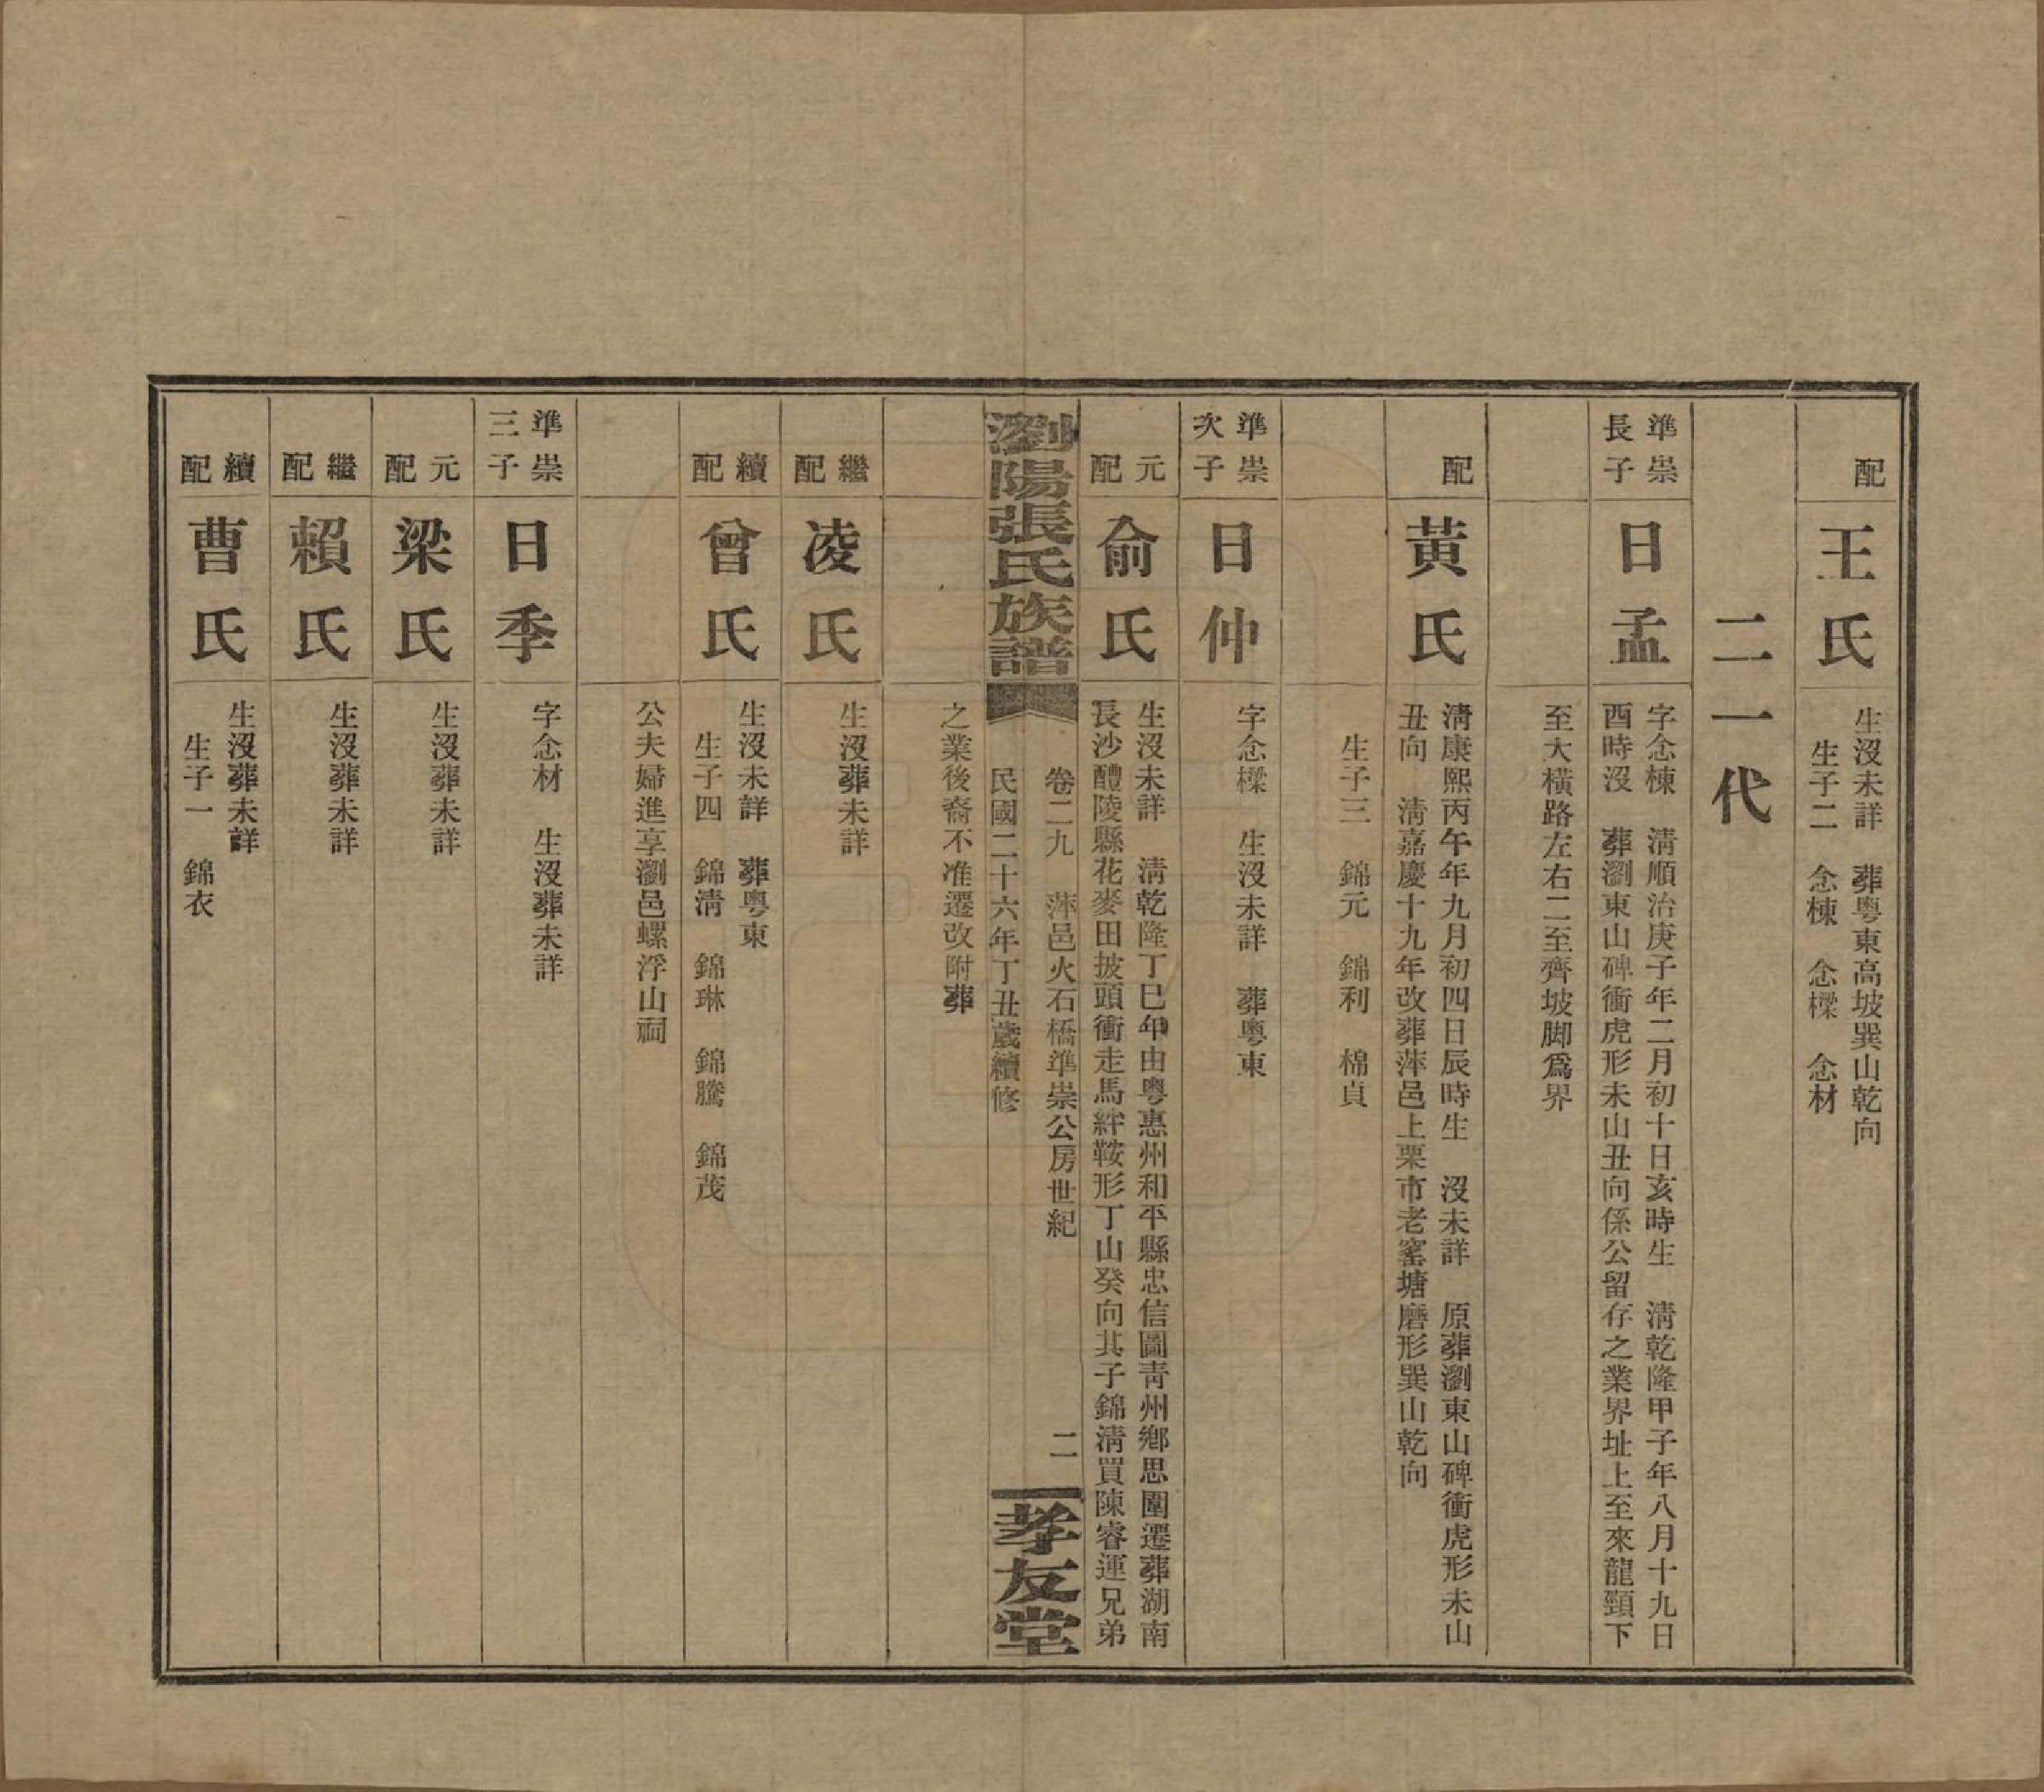 配
王氏
生沒未詳　葬粵東高坡巽山乾向
生子二　念棟　念樑　念材
二一代
準崇
長子
日孟
字念棟　淸順治庚子年二月初十日亥時生　淸乾隆甲子年八月十九日
酉時沒　葬瀏東山碑衝虎形未山丑向係公留存之業界址上至來龍頸下
至大橫路左右二至齊坡脚爲界
配
黃氏
淸康熙丙午年九月初四日辰時生　沒未詳　原葬瀏東山碑衝虎形未山
丑向　淸嘉慶十九年改葬萍邑上栗市老窰塘磨形巽山乾向
生子三　錦元　錦利　棉貞
準崇
次子
日仲
字念樑　生沒未詳　葬粵東
元
配
俞氏
生沒未詳　淸乾隆丁巳年由粵惠州和平縣忠信圖靑州鄉思圍遷葬湖南
長沙醴陵縣花麥田披頭衝走馬絆鞍形丁山癸向其子錦淸買陳睿運兄弟
瀏陽張氏族譜
卷二九　萍邑火石橋準崇公房世紀
二
民國二十六年丁丑歲續修
孝友堂
之業後裔不准遷改附葬
繼
配
凌氏
生沒葬未詳
續
配
曾氏
生沒未詳　葬粵東
生子四　錦淸　錦琳　錦騰　錦茂
公夫婦進享瀏邑螺浮山祠
準崇
三子
日季
字念材　生沒葬未詳
元
配
梁氏
生沒葬未詳
繼
配
賴氏
生沒葬未詳
續
配
曹氏
生沒葬未詳
生子一　錦衣